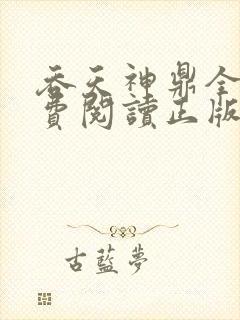 吞天神鼎全
費閱讀正版
古藍夢